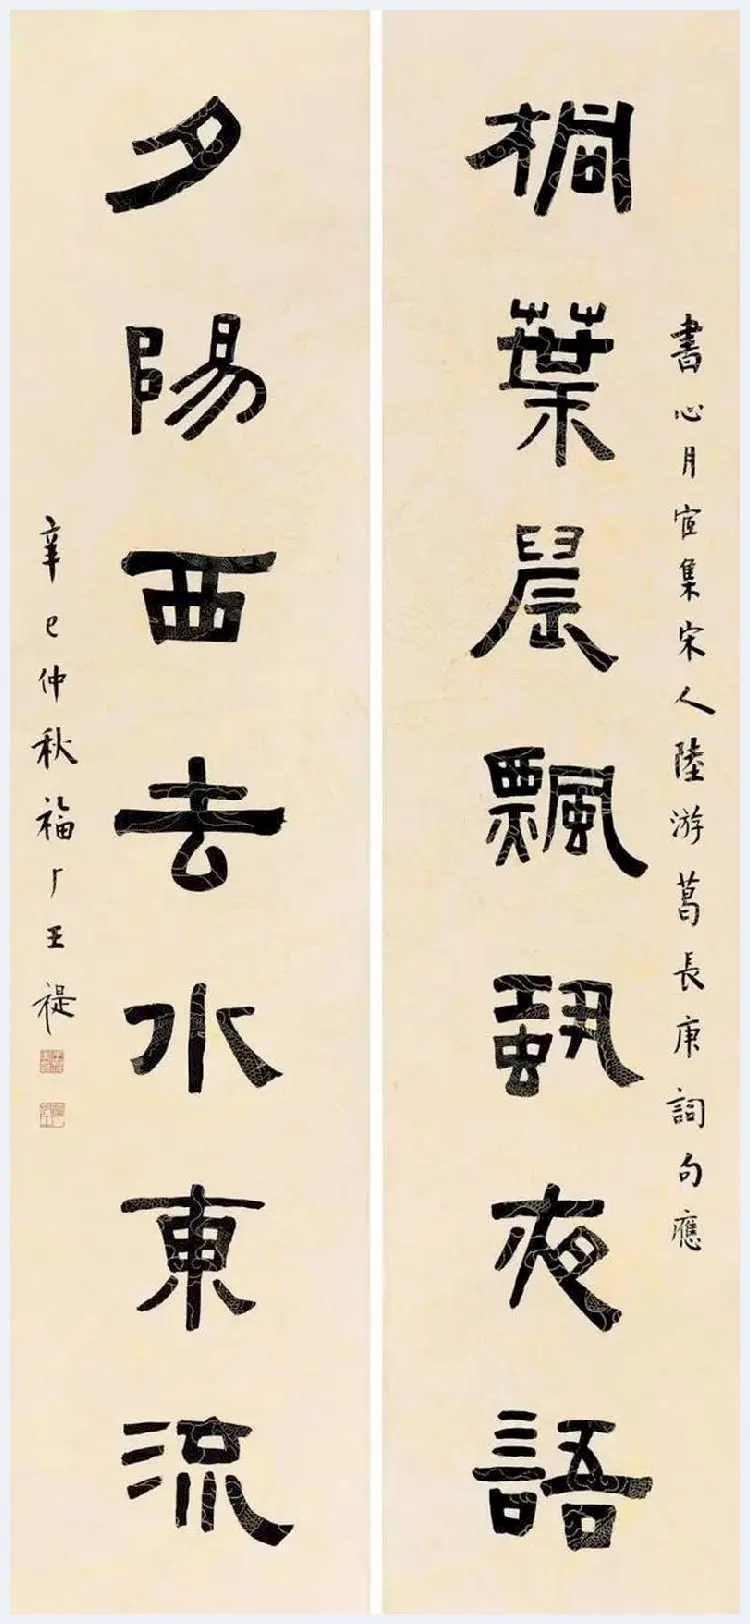 書心月宦集宋人陸游葛長庚詞句應
桐葉晨飄蛩夜語
夕陽西去水東流
辛巳仲秋福厂王禔